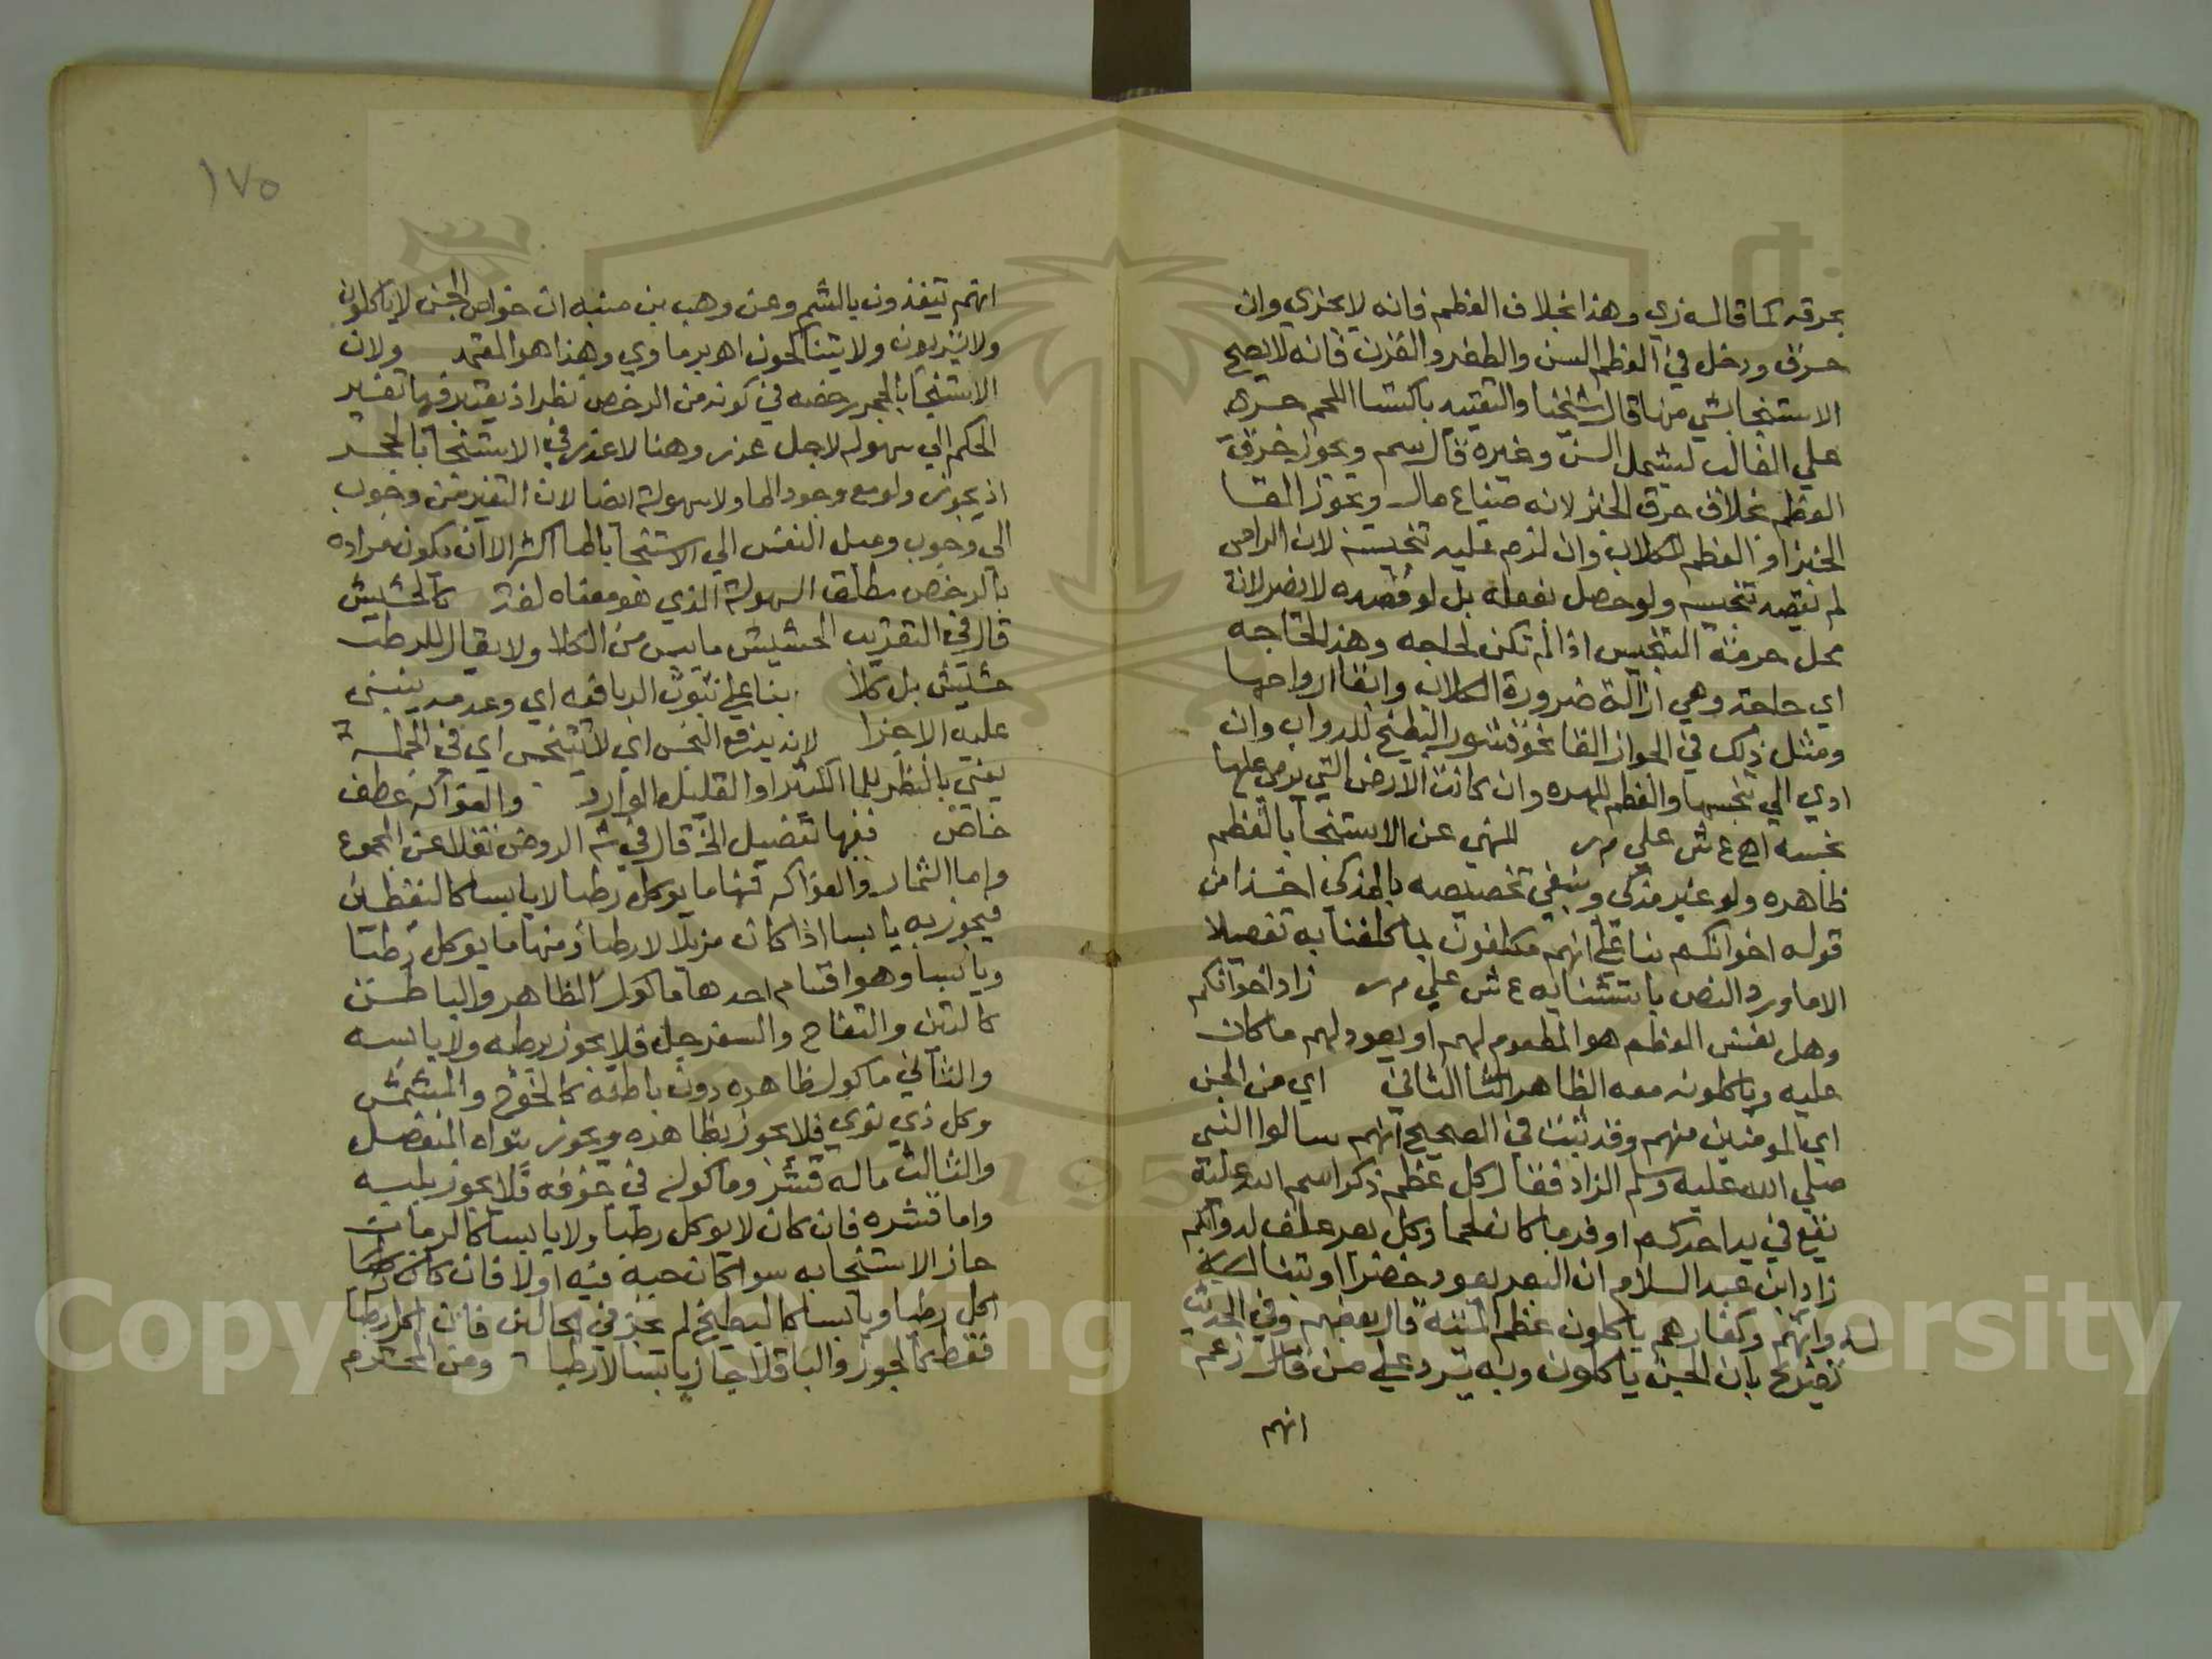 بحرقه كما قاله زي وهذا بخلاف العظم فانه لا يجزي وان
حرق ودخل في العظم السن والظفر والقرن فانه لا يصح
الاستنجا بشي منها قال شيخنا والتقييد باكتسا اللحم جري
علي الغالب ليشمل السن وغيره قال سم ويجوز حرق
العظم بخلاف حرق الخبز لانه ضياع مال ويجوز القا
الخبز او العظم للكلاب وان لزم عليه تنجيسه لان الرامي
لم يقصد تنجيسه ولو حصل بفعله بل لو قصده لا يضر لان
محل حرمة التنجيس اذا لم تكن لحاجه وهذا لحاجه
اي حاجة وهي ازالة ضرورة الكلاب وابقا ارواحها
ومثل ذلك في الجواز القا نحو قشور البطيخ للدواب وان
ادي الي تنجسها والعظم للهره وان كانت الارض التي يرمي عليها
نجسه اهـ ع ش علي م ر للنهي عن الاستنجا بالعظم
ظاهره ولو غير مذكي وينبغي تخصيصه بالمذكي اخذا من
قوله اخوانكم بنا علي انهم مكلفون بما كلفنا به تفصيلا
الا ما ورد النص باستثنايه ع ش علي م ر زاد اخوانكم
وهل نفس العظم هو المطعوم لهم او يعود لهم ما كان
عليه وياكلونه معه الظاهر الثاني اي من الجن
اي المومنين منهم وقد ثبت في الصحيح انهم سالوا النبي
صلي الله عليه وسلم الزاد فقال كل عظم ذكر اسم الله عليه
يقع في يد احدكم اوفر ما كان لحما وكل بعر علف لدوابكم
زاد ابن عبد السلام ان البعر يعود خضرا او تبنا
له وانهم وكفارهم ياكلون عظم الميتة قال بعضهم وفي الحديث
تصريح بان الجن ياكلون وبه يرد علي من قال زعم
انهم
١٧٥
انهم يتغذون بالشم وعن وهب بن منبه ان خواص الجن لا ياكلون
ولا يشربون ولا يتناكحون اهـ برماوي وهذا هو المعتمد ولان
الاستنجا بالحجر رخصه في كونه من الرخص نظر اذ يعتبر فيها تغير
الحكم الي سهوله لاجل عذر وهنا لا عذر في الاستنجا بالحجر
اذ يجوز ولو مع وجود الما ولا سهولة ايضا لان التغير من وجوب
الي وجوب وميل النفس الي الاستنجا بالما اكثر الا ان يكون مراده
بالرخص مطلق السهولة الذي هو معناه لغة كالحشيش
قال في التقريب الحشيش ما يبس من الكلا ولا يقال للرطب
حشيش بل كلا بنا علي ثبوت الدباغه اي وعدمه ينبني
عليه الاجزا لانه يدفع النجس اي لا يتنجس اي في الجملة
يعني بالنظر للما الكثير او القليل الوارد والفواكه عطف
خاص ففيها تفصيل الخ قال في شـ الروض نقلا عن المجموع
واما الثمار والفواكه فمنها ما يوكل رطبا لا يابسا كاليقطين
فيجوز به يابسا اذا كان مزيلا لا رطبا ومنها ما يوكل رطبا
ويابسا وهو اقسام احدها ماكول الظاهر والباطن
كالتين والتفاح والسفرجل فلا يجوز برطبه ولا يابسه
والثاني ماكول ظاهره دون باطنه كالخوخ والمشمش
وكل ذي نوي فلا يجوز بظاهره ويجوز بنواه المنفصل
والثالث ماله قشر وماكوله في جوفه فلا يجوز بلبه
واما قشره فان كان لا يوكل رطبا ولا يابسا كالرمان
جاز الاستنجا به سوا كان حبه فيه اولا فان كان
اكل رطبا ويابسا كالبطيخ لم يجز في الحالين فان اكل رطبا
فقط كاللوز والباقلا جاز يابسا لا رطبا ومن المحترم
Copyright © King Saud University
195